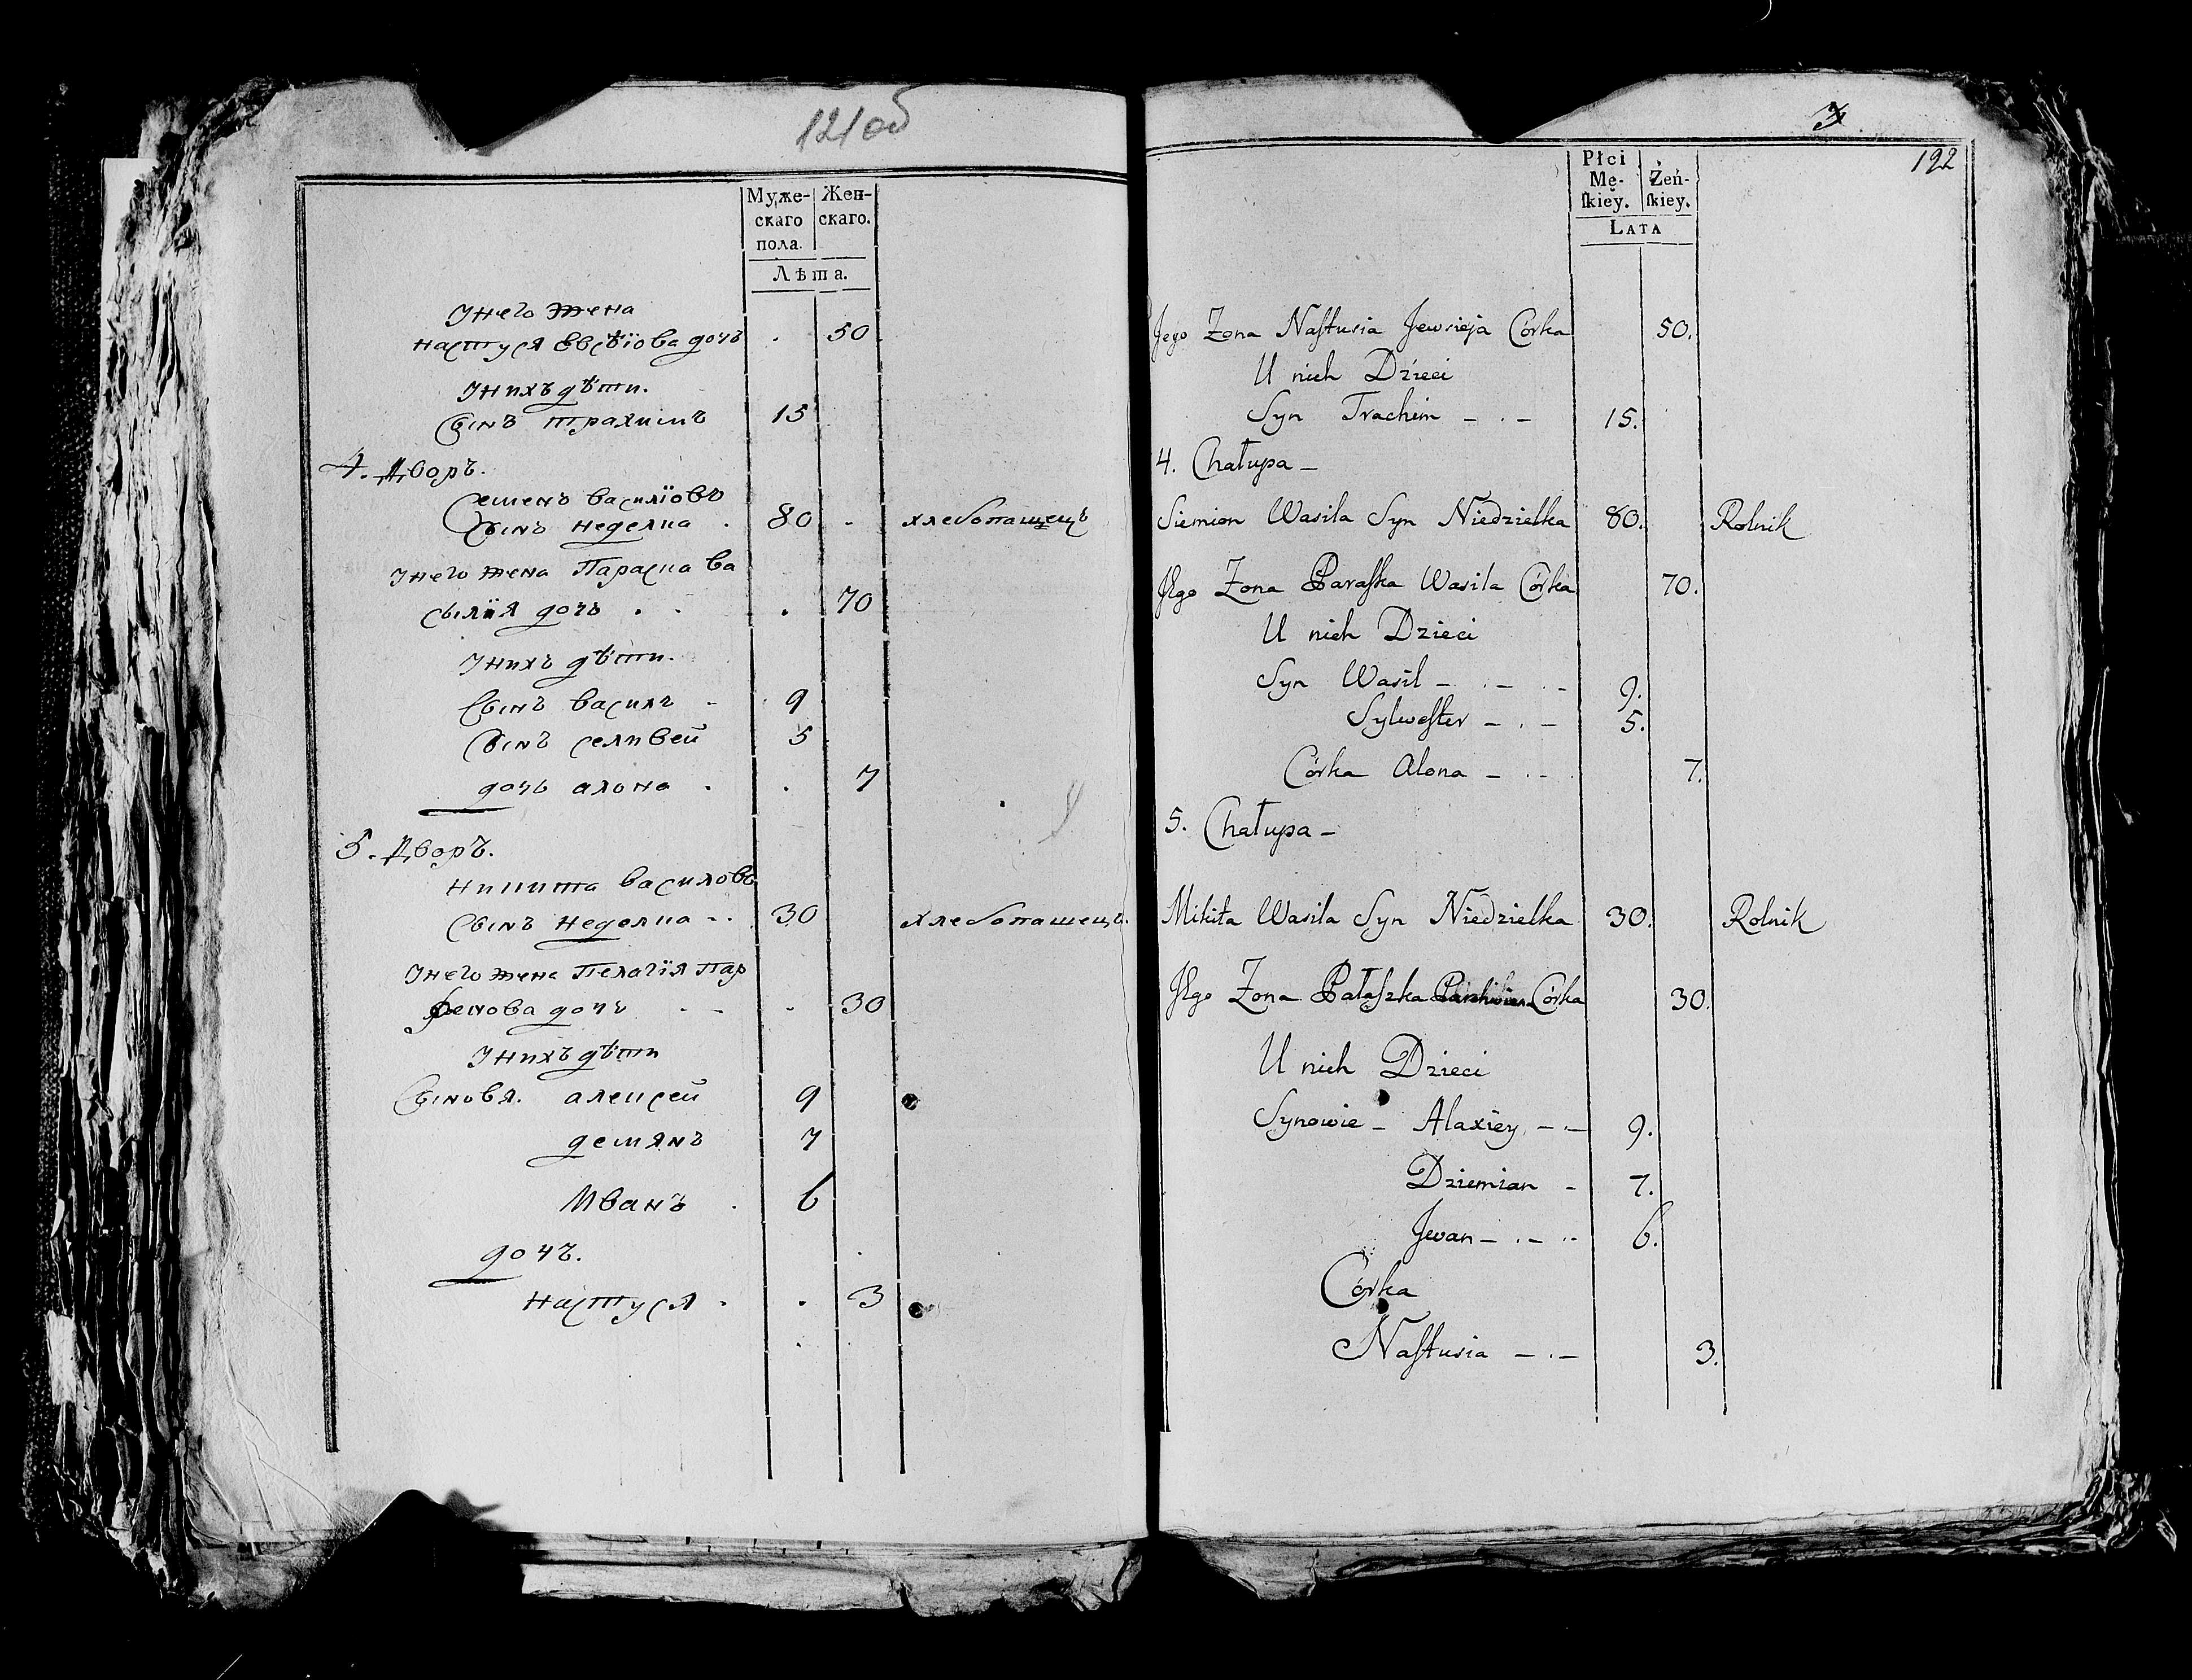 121об
Муже-
скаго
пола.
Жен-
скаго.
Лѣта.
Унего жена
настуся Евсѣiова дочъ . 50
Унихъ дѣти.
Сынъ трахимъ 15
4. Дворъ.
Семенъ василiовъ
Сынъ неделка . 80 . хлебопашецъ
Унего жена Параска ва
сылия дочь . . . 70
Унихъ дѣти.
Сынъ василъ - 9
Сынъ селивей 5
дочь алона . . 7
5. Дворъ.
никита василовъ
Сынъ неделка - . 30 хлебопашецъ.
Унего жена Пелагiя Пар
фенова дочъ . - . 30
Унихъ дѣти
Сыновя. алексей 9
демянъ 7
Иванъ . 6
дочъ.
Настуся . . 3
3
192
Płci
Mę-
ſkiey.
Żeń-
ſkiey.
LATA
Jego Zona Naſtusia Jewsieja Córka 50.
U nich Dzieci
Syn Trachim - . - 15.
4. Chałupa -
Siemion Wasila Syn Niedzielka 80. Rolnik
Jego Zona Paraſka Wasila Córka 70.
U nich Dzieci
Syn Wasil - . - . - 9.
Sylweſter - . - 5.
Córka Alona - . - 7.
5. Chałupa -
Mikita Wasila Syn Niedzielka 30. Rolnik
Jego Zona Pałaſzka Córka 30.
U nich Dzieci
Synowie - Alaxiey - - 9.
Dziemian - 7.
Jwan - . - .. 6.
Córka
Naſtusia - . - 3.